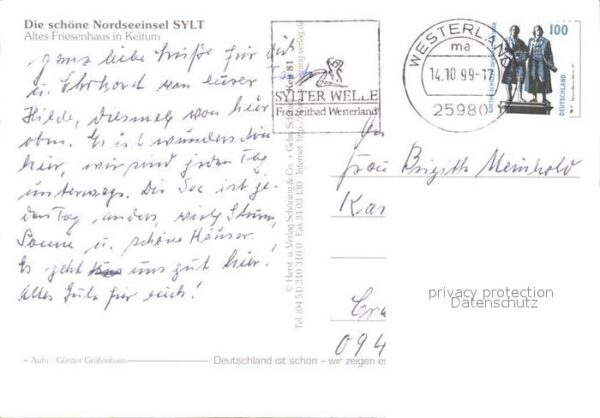 Die schöne Nordseeinsel SYLT
Altes Friesenhaus in Keitum
ganz liebe Grüße für dich
u. Ekkehard von eurer Tante
Hilde, diesmal von hier
oben. Es ist wunderschön
hier, wir sind jeden Tag
unterwegs. Die See ist je-
den Tag anders, viel Sturm,
Sonne u. schöne Häuser.
Es geht uns gut hier!
Alles Gute für euch!
Aufn.: Günter Gräfenhain
Deutschland ist schön – wir zeigen es
© Herst. u. Verlag Schöning & Co. + Gebr. Schmidt
Tel. (04 51) 310 310 0 Fax 31 03 130 Internet: http://
81
SYLTER WELLE
Freizeitbad Westerland
WESTERLAND
ma
14.10.99-17
25980
100
DEUTSCHLAND
Frau Brigitte Meinhold
Kar
094
privacy protection
Datenschutz